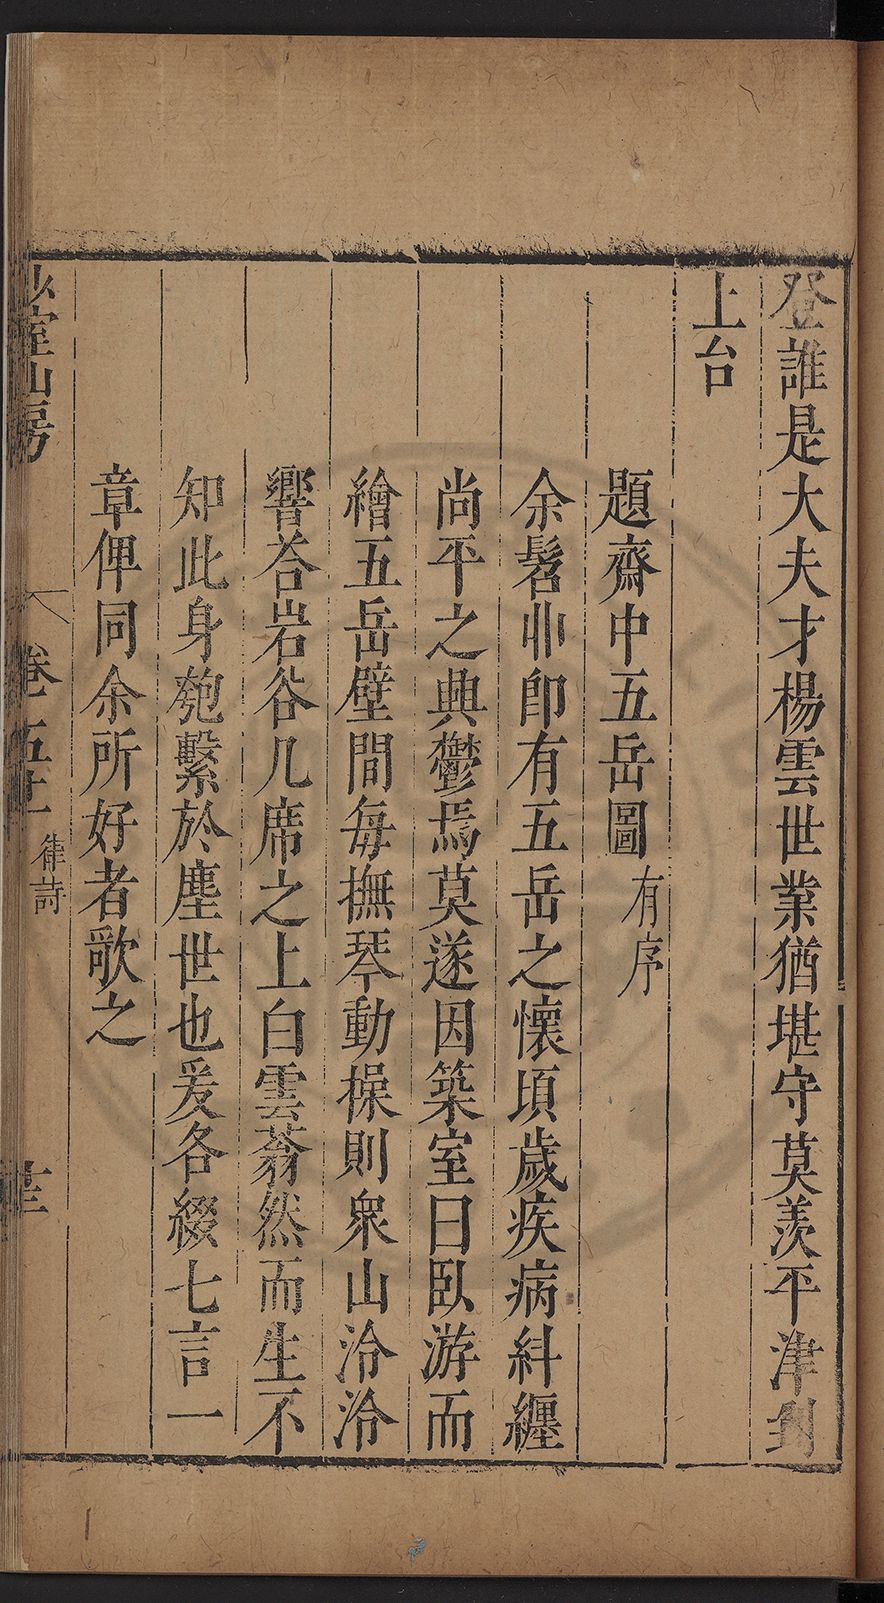 登誰是大夫才楊雲世業猶堪守莫羨平津到
上台
題齋中五岳圖有序
余髫丱卽有五岳之懷頃歲疾病糾纏
尚平之興鬱焉莫遂因築室曰臥游而
繪五岳壁間每撫琴動操則衆山泠泠
響荅岩谷几席之上白雲蓊然而生不
知此身匏繫於塵世也爰各綴七言一
章俾同余所好者歌之
少室山房
卷五十
律詩